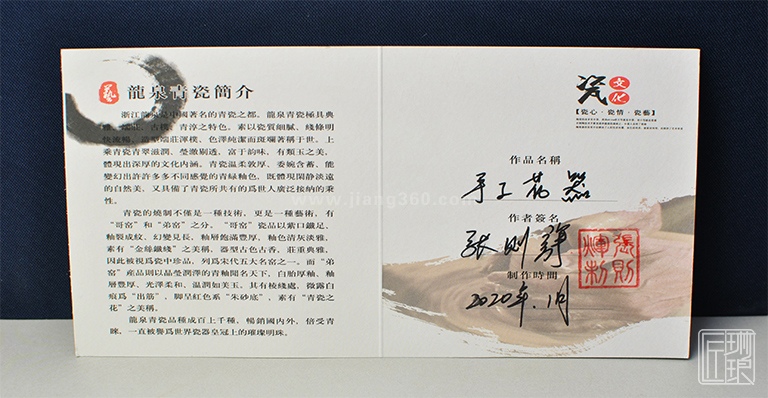 藝 龍泉青瓷簡介
浙江龍泉是中國著名的青瓷之都。龍泉青瓷極具典
雅、端莊、古樸、青淳之特色。素以瓷質細膩、綫條明
快流暢、造型端莊渾樸、色澤純潔而斑斕著稱于世。上
乘青瓷青翠滋潤、瑩澈剔透，富于韵味，有類玉之美、
體現出深厚的文化內涵。青瓷温柔敦厚、委婉含蓄、能
變幻出許許多多不同感覺的青緑釉色，既體現閑静淡遠
的自然美，又具備了青瓷所共有的爲世人廣泛接納的秉
性。
青瓷的燒制不僅是一種技術，更是一種藝術，有
“哥窑”和“弟窑”之分。“哥窑”瓷品以紫口鐵足、
釉裂成紋、幻變見長，釉層飽滿豐厚，釉色清灰淡雅，
素有“金絲鐵綫”之美稱，器型古色古香，莊重典雅，
因此被視爲瓷中珍品，列爲宋代五大名窑之一。而“弟
窑”産品則以晶瑩潤澤的青釉聞名天下，白胎厚釉、釉
層豐厚，光澤柔和，温潤如美玉。具有棱綫處，微露白
痕爲“出筋”，脚呈紅色系“朱砂底”，素有“青瓷之
花”之美稱。
龍泉青瓷品種成百上千種，暢銷國內外，倍受青
睞，一直被譽爲世界瓷器皇冠上的璀璨明珠。
瓷 文化
【瓷心·瓷情·瓷藝】
作品名稱
手工花器
作者簽名
張則輝
張則
輝制
制作時間
2020年.1月
www.jiang360.com
匠琅琅